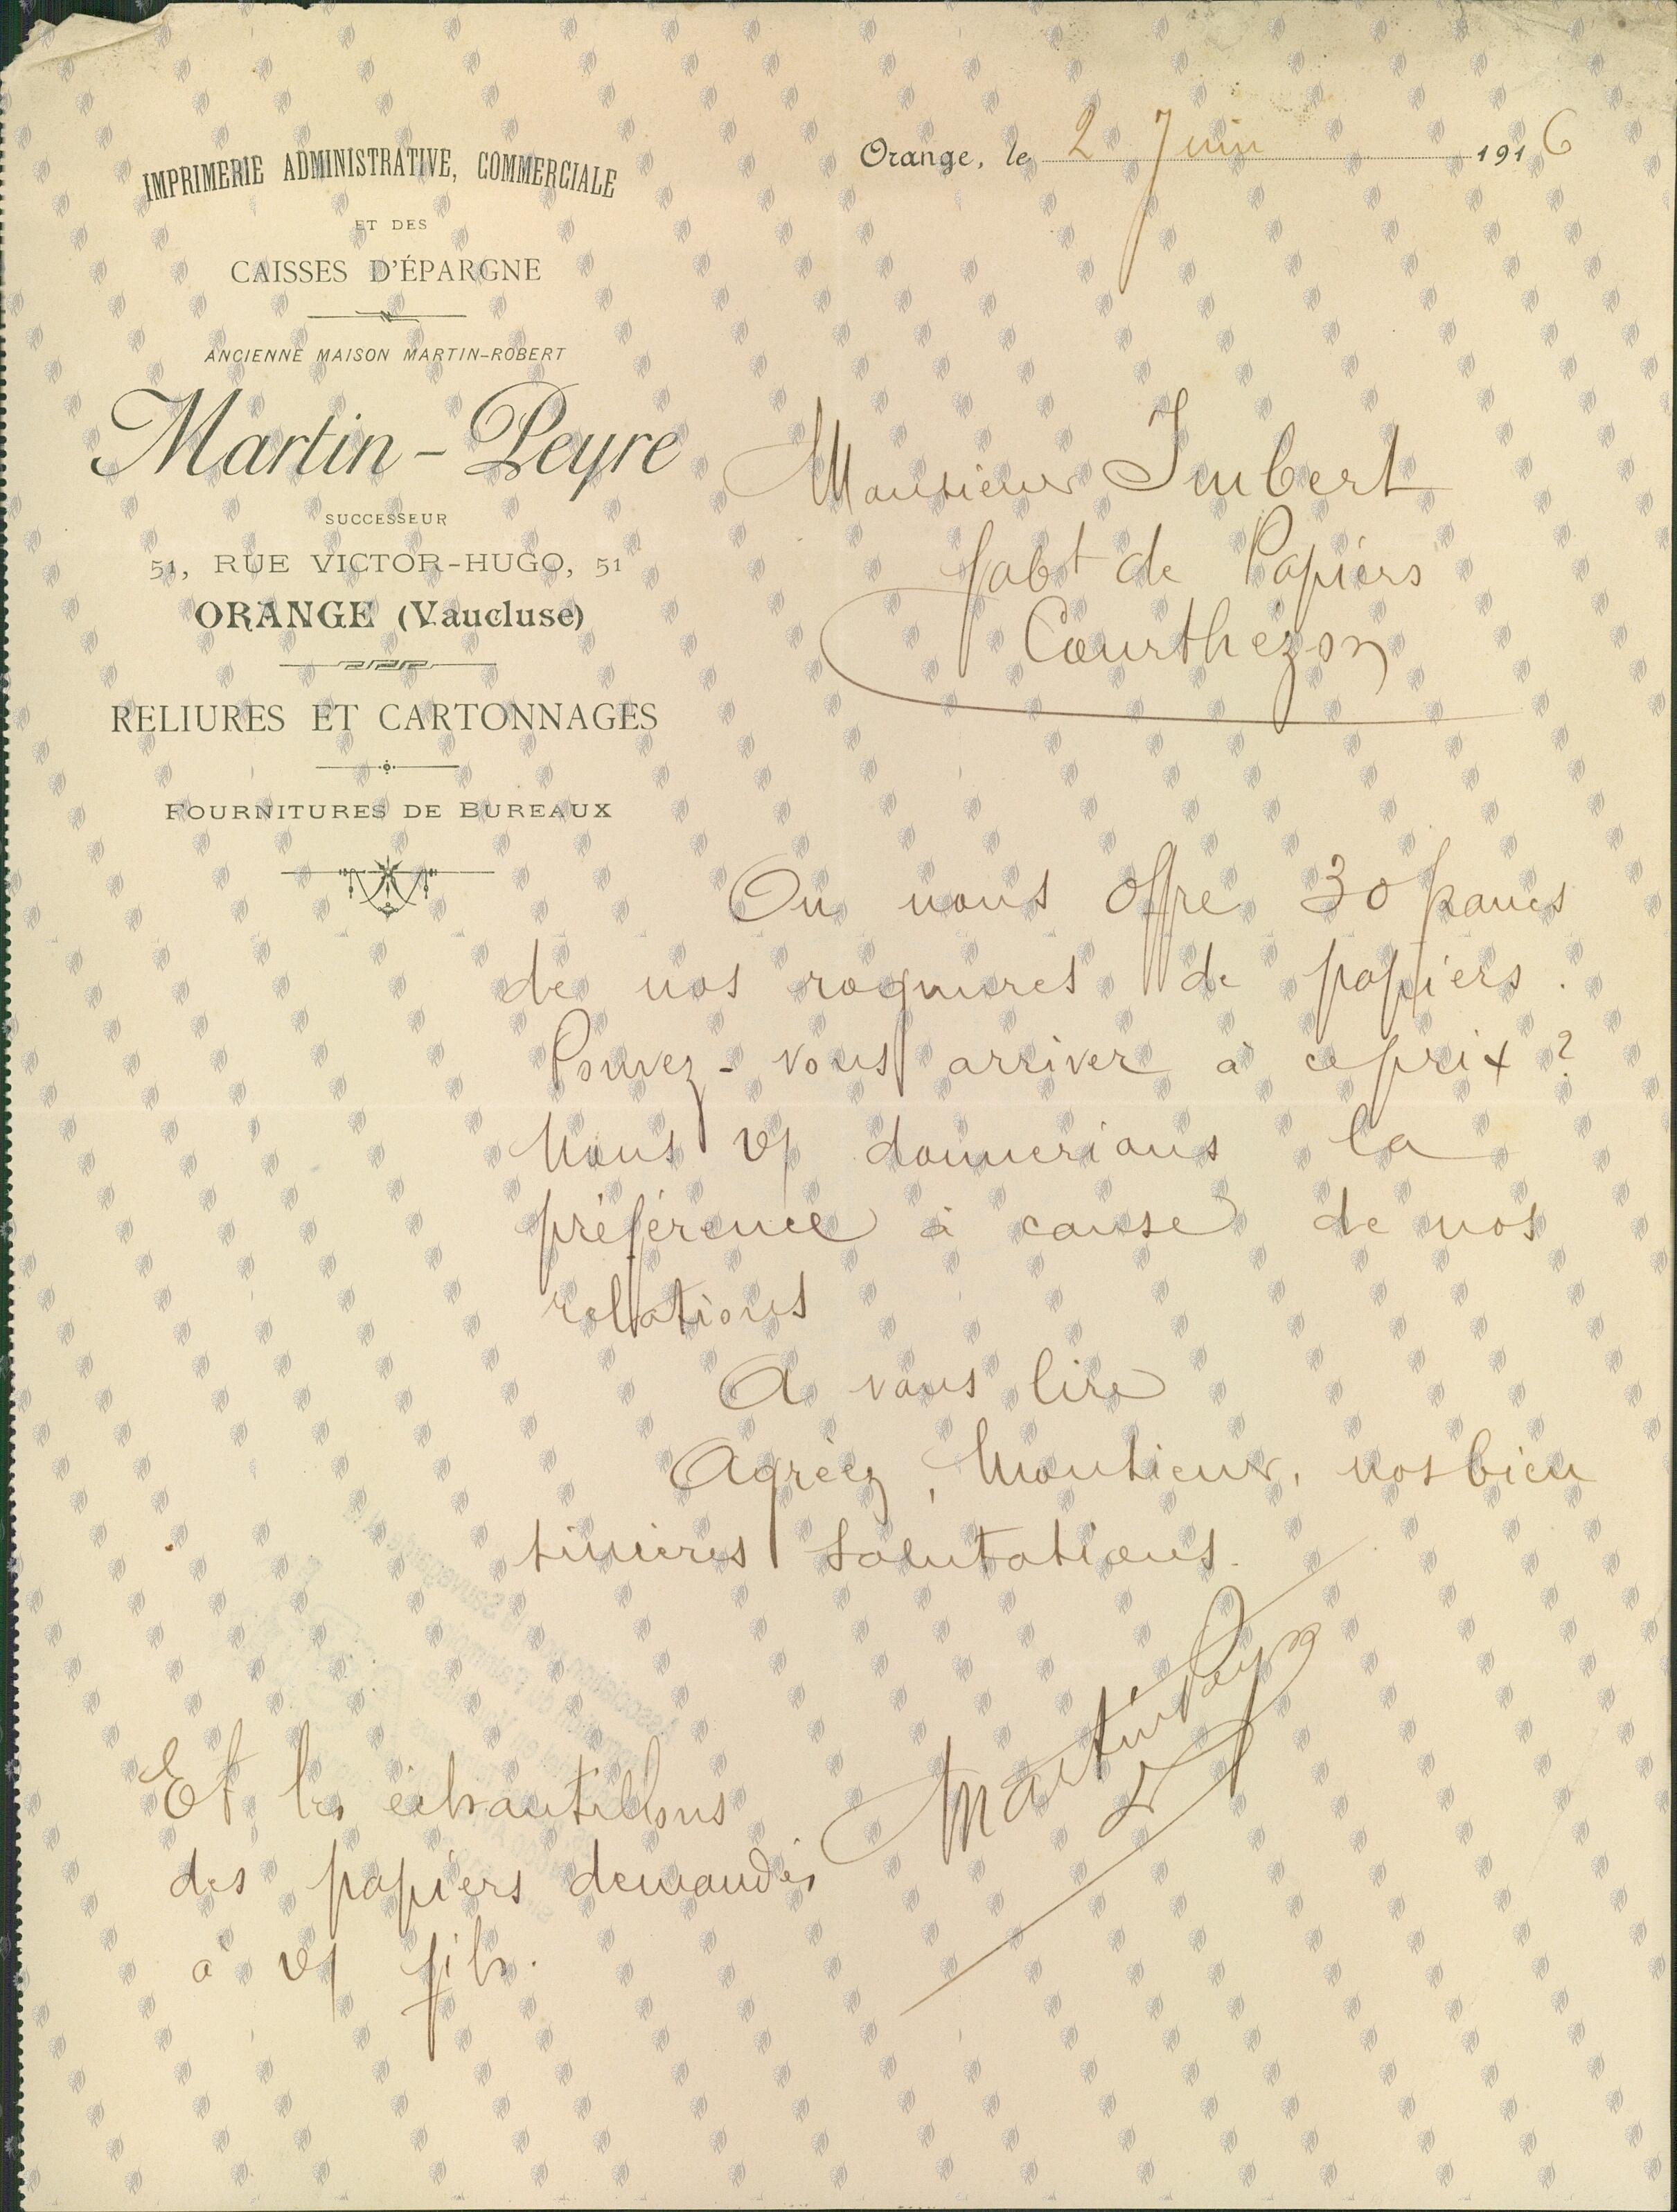 IMPRIMERIE ADMINISTRATIVE, COMMERCIALE
ET DES
CAISSES D'ÉPARGNE
ANCIENNE MAISON MARTIN-ROBERT
Martin-Peyre
SUCCESSEUR
51, RUE VICTOR-HUGO, 51
ORANGE (Vaucluse)
RELIURES ET CARTONNAGES
FOURNITURES DE BUREAUX
Orange, le 2 Juin 1916
Monsieur Imbert
fabt de Papiers
Courthézon
On nous offre 30 francs
de nos rognures de papiers.
Pouvez-vous arriver à ce prix?
Nous vs donnerions la
préférence à cause de nos
relations
A vous lire
Agréez, Monsieur, nos bien
sincères salutations.
Martin Peyre
Et les échantillons
des papiers demandés
à vs fils.